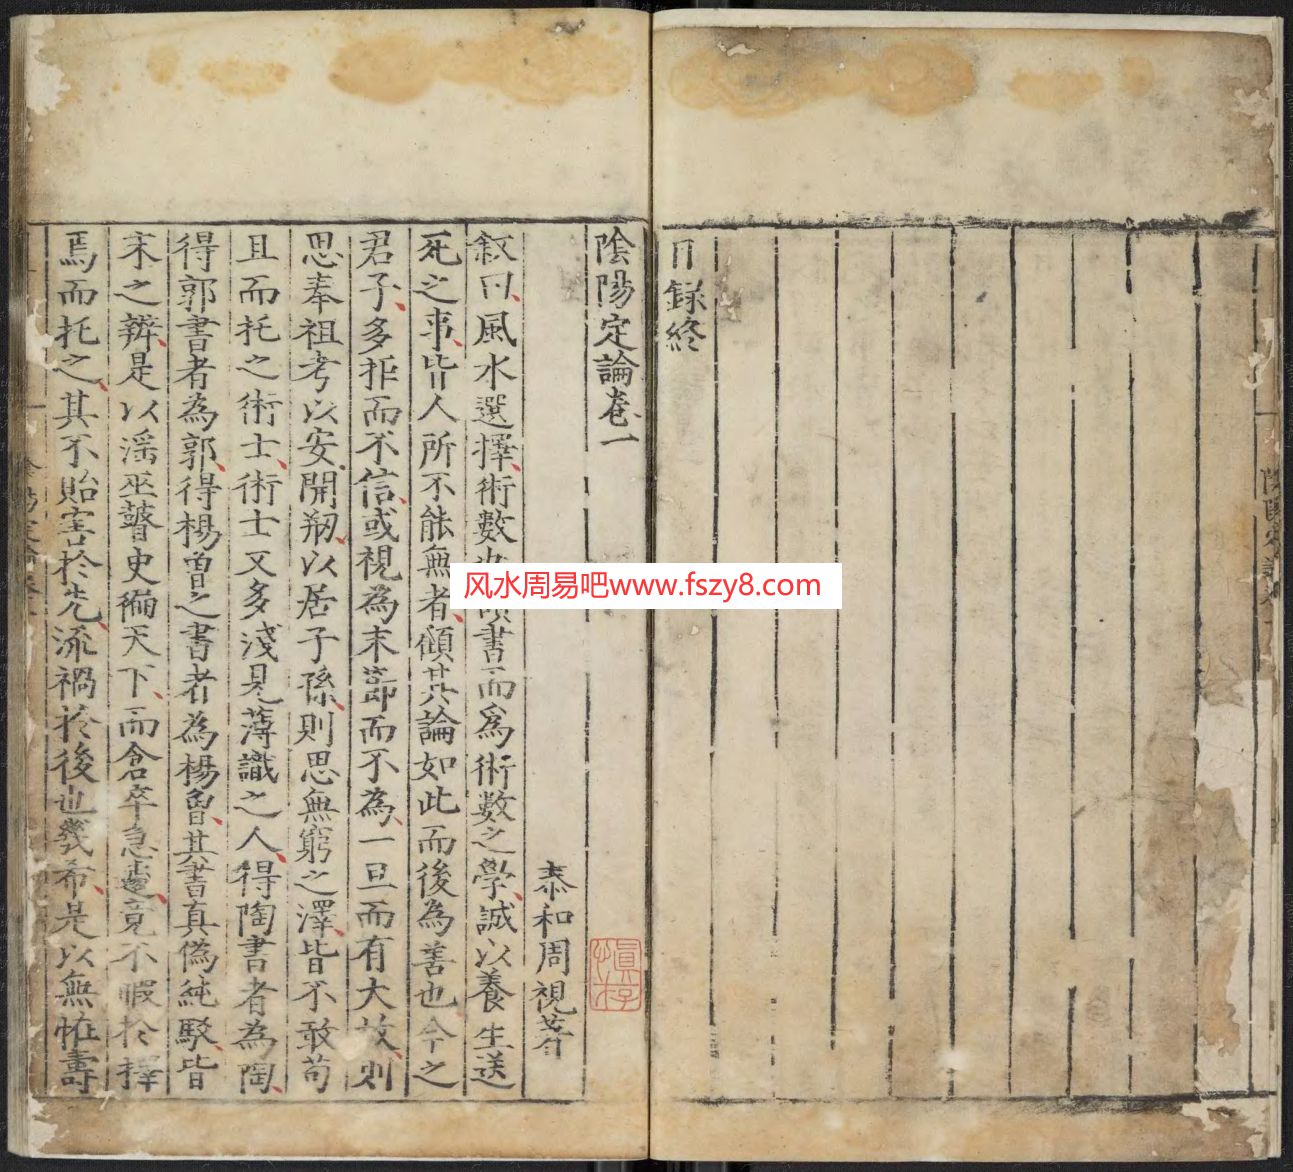 目録終
陰陽定論卷一
泰和周視考
叙曰風水選擇術數
書而為術數之學誠以養生送
死之事皆人所不能無者顧其論如此而後為善也今之
君子多拒而不信或視為末節而不為一旦而有大故則
思奉祖考以安開剏以居子孫則思無窮之澤皆不敢苟
且而托之術士術士又多淺見薄識之人得陶書者為陶
得郭書者為郭得楊曾之書者為楊曾其書真偽純駁皆
末之辨是以滛巫瞽史徧天下而倉卒急遽竟不暇於擇
焉而托之其不貽害於先流禍於後也幾希是以無怪壽
慎存
风水周易吧www.fszy8.com